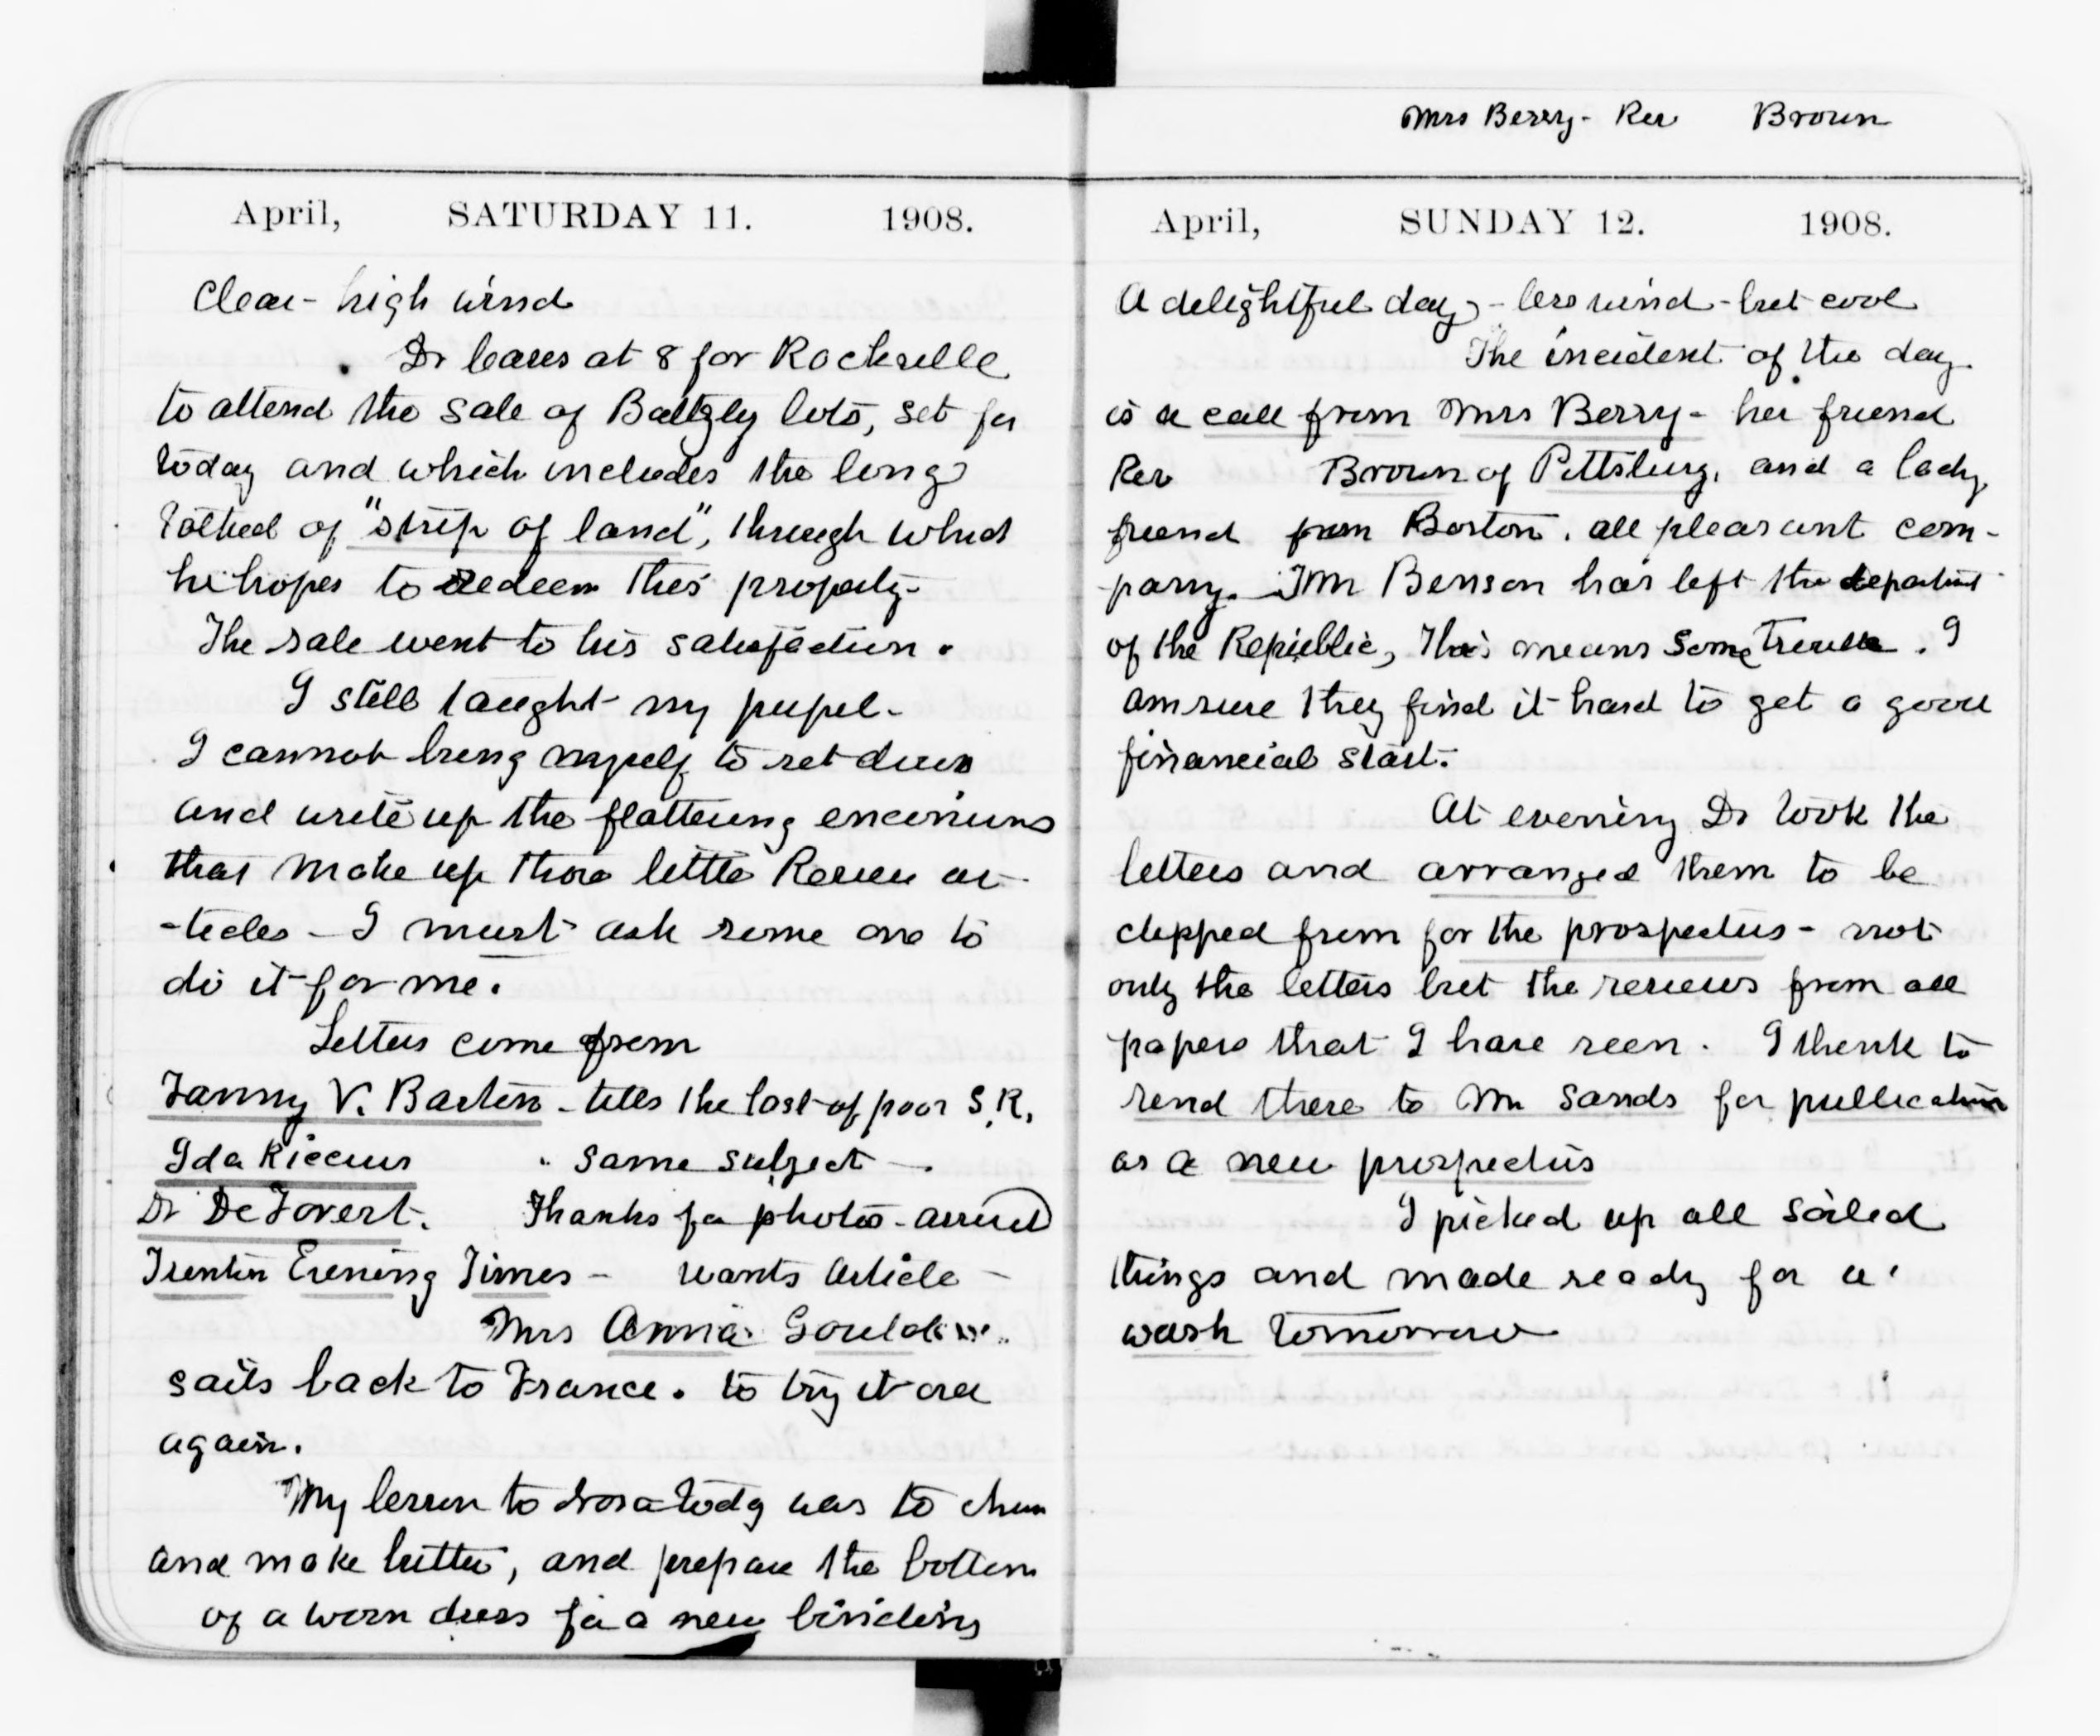 April, SATURDAY 11. 1908.
Clear - high wind
Dr leaves at 8 for Rockville
to attend the sale of Baltzly lots, set for
today and which includes the long
talked of "strip of land", through which
he hopes to redeem this property.
The sale went to his satisfaction.
I still taught my pupil.
I cannot bring myself to set down
and write up the flattering encomiums
that make up those little Review ar-
-ticles - I must ask some one to
do it for me.
Letters come from
Fanny V. Barten - tells the last of poor S.R.
Ida Riccius " same subject -
Dr DeForert. Thanks for photos - arrived
Trenton Evening Times - wants article -
Mrs Anna Gould
sails back to France. to try it over
again.
My lesson to Nora today was to churn
and make butter, and prepare the bottom
of a worn dress for a new binding
Mrs Berry - Rev Brown
April, SUNDAY 12. 1908.
A delightful day, - less wind - but cool
The incident of the day
is a call from Mrs Berry - her friend
Rev Brown of Pittsburg, and a lady
friend from Boston. all pleasant com-
-pany. Mr Benson has left the department
of the Republic, This means some trouble. I
am sure they find it hard to get a good
financial start.
At evening Dr took the
letters and arranged them to be
clipped from for the prospectus - not
only the letters but the reviews from all
papers that I have seen. I think to
send these to Mr Sands for publication
as a new prospectus
I picked up all soiled
things and made ready for a
wash tomorrow